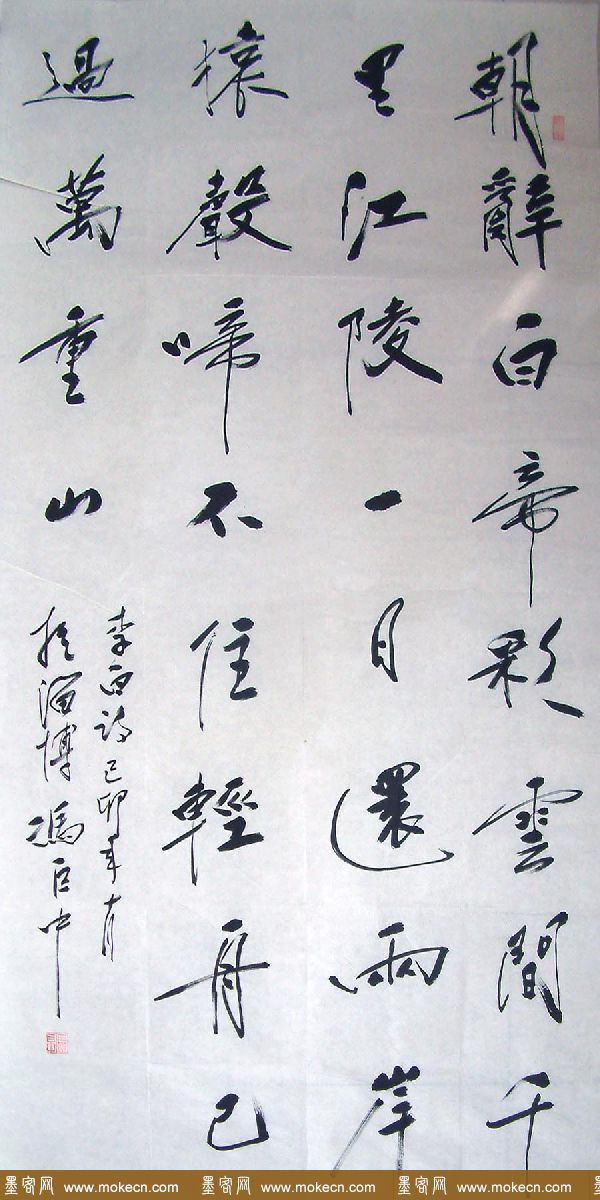 朝辭白帝彩雲間千
里江陵一日還兩岸
猿聲啼不住輕舟已
過萬重山
李白詩己卯年
於淄博馮中
墨客网 www.mokecn.com 墨客网 www.mokecn.com 墨客网 www.mokecn.com